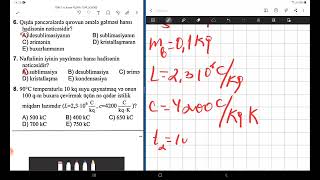 6. Qışda pəncərələrdə qırovun əmələ gəlməsi hansı
hadisənin nəticəsidir?
A) desublimasiyanın B) sublimasiyanın
C) ərimənin D) kristallaşmanın
E) buxarlanmanın
7. Naftalinin iyinin yayılması hansı hadisənin
nəticəsidir?
A) sublimasiya B) desublimasiya C) ərimə
D) kristallaşma E) kondensasiya
8. 90°C temperaturlu 10 kq suyu qaynatmaq və onun
100 q-nı buxara çevirmək üçün nə qədər istilik
miqdarı lazımdır (L=2,3·10⁶ C/kq, c=4200 C/kq·K)?
A) 500 kC B) 400 kC C) 650 kC
D) 700 kC E) 750 kC
m_b = 0,1 kq
L = 2,3 10⁶ C/kq
c = 4200 C/kq K